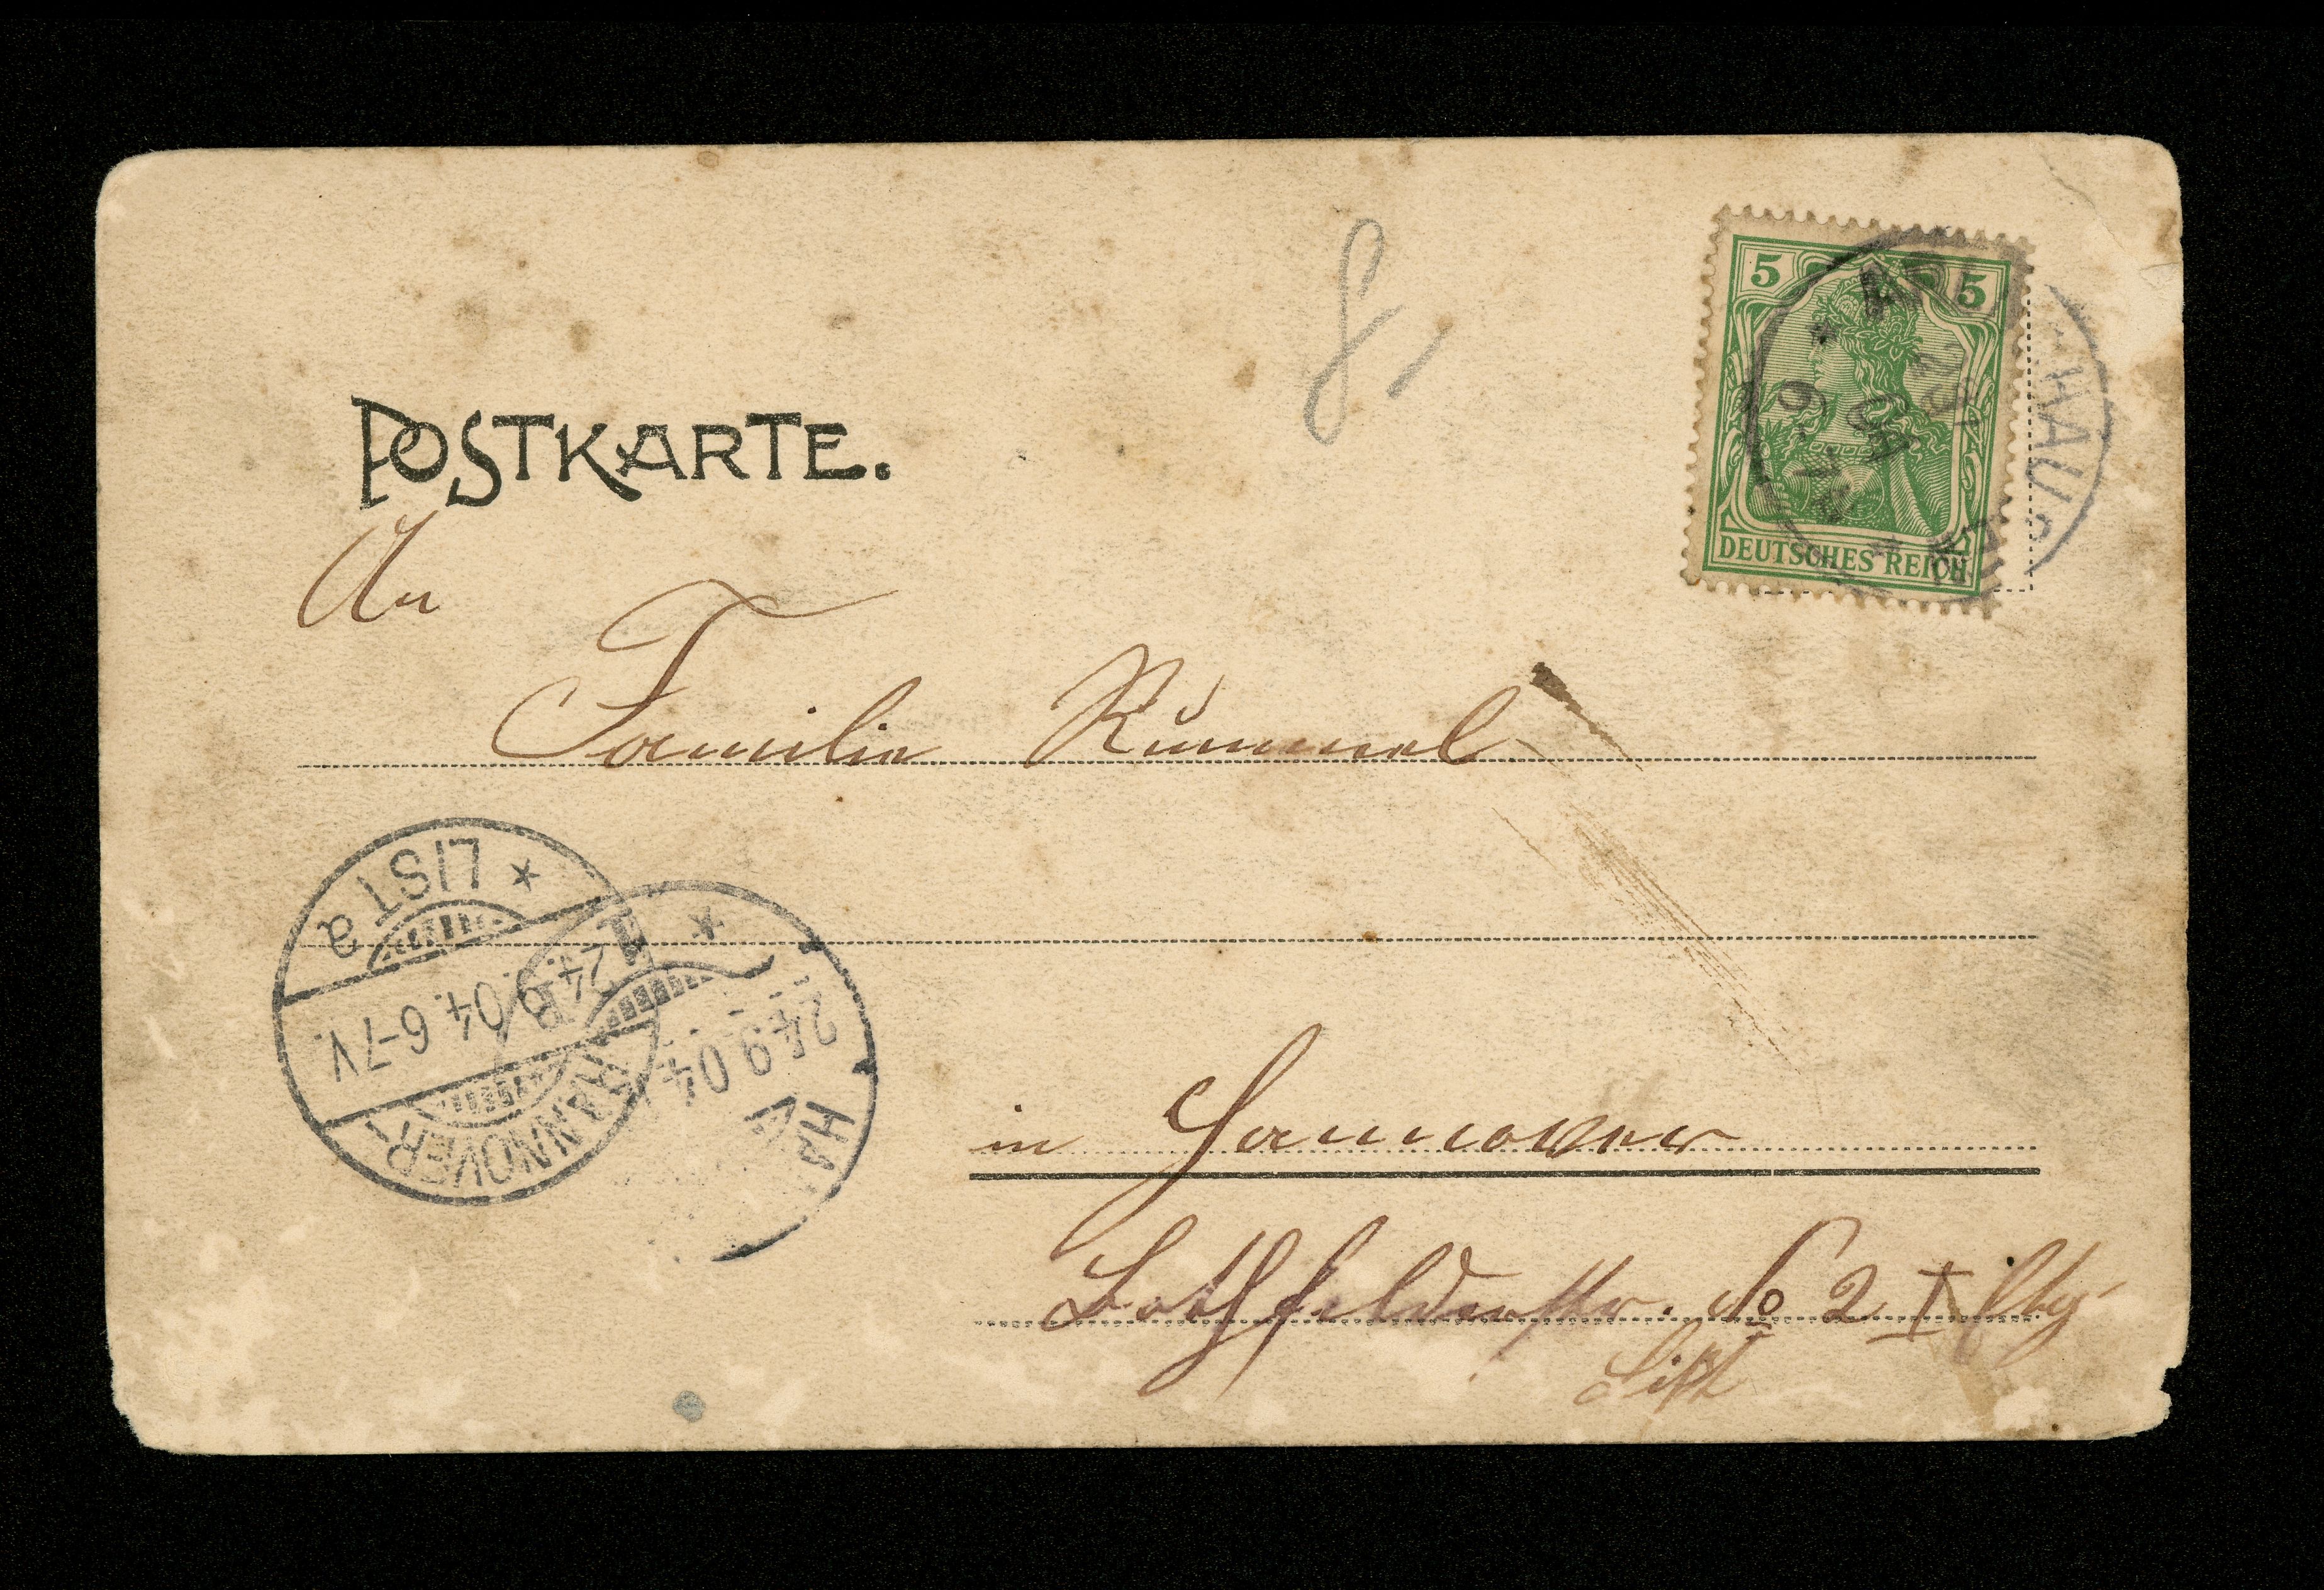 POSTKARTE.
8,
5 5
DEUTSCHES REICH
An
Familie Rummel
LIST a
24.9.04. 6-7V.
HANNOVER 1
24 9 04
in Hannover
Bothfelderstr. No 2 I Etg.
List